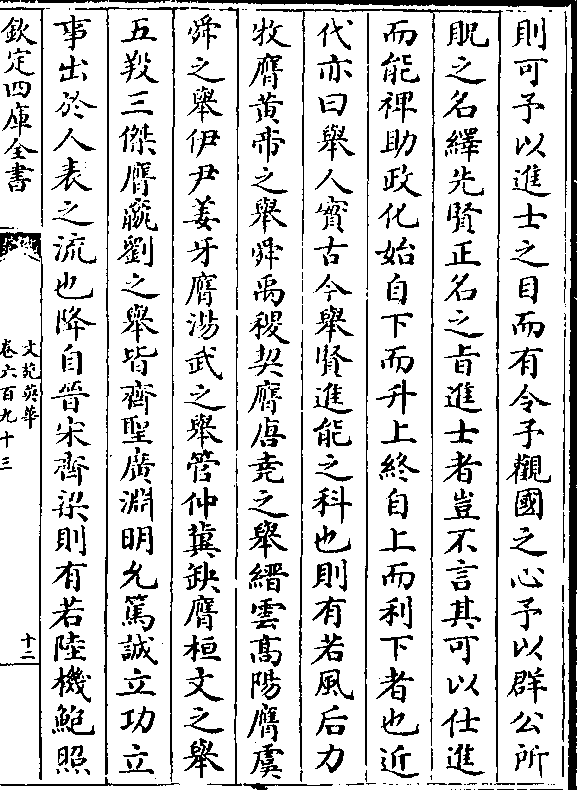 則可予以進士之目而有令予觀國之心予以群公所
貺之名繹先賢正名之旨進士者豈不言其可以仕進
而能裨助政化始自下而升上終自上而利下者也近
代亦曰舉人實古今舉賢進能之科也則有若風后力
牧膺黃帝之舉舜禹稷契膺唐堯之舉縉雲高陽膺虞
舜之舉伊尹姜牙膺湯武之舉管仲冀缺膺桓文之舉
五羖三傑膺嬴劉之舉皆齊聖廣淵明允篤誠立功立
事出於人表之流也降自晉宋齊梁則有若陸機鮑照
欽定四庫全書
文苑英華
卷六百九十三
十二